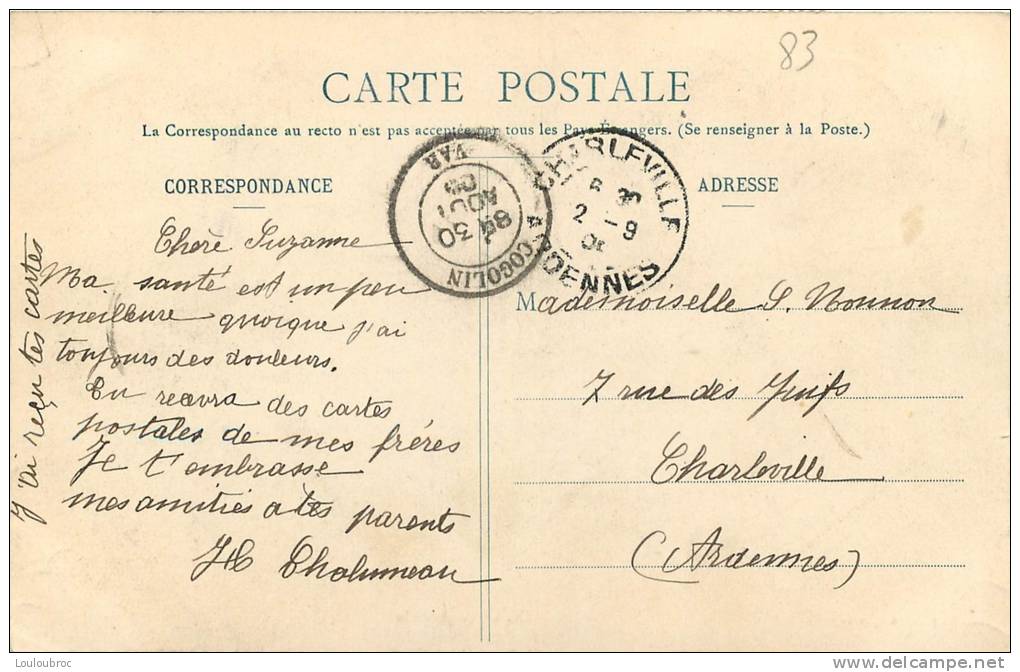 83
CARTE POSTALE
La Correspondance au recto n'est pas acceptée par tous les Pays Étrangers. (Se renseigner à la Poste.)
CORRESPONDANCE
ADRESSE
COGOLIN
30
AOUT
VAR
CHARLEVILLE
2 - 9
ARDENNES
Chere Suzanne
Ma santé est un peu
meilleure quoique j'ai
toujours des douleurs.
Tu recevra des cartes
postales de mes fréres
Je t'embrasse
mes amitiés a tes parents
H Chalumeau
J'ai reçu tes cartes
Mademoiselle S. Nonnon
7 rue des Juifs
Charleville
(Ardennes)
Louloubroc
http://www.delcampe.net